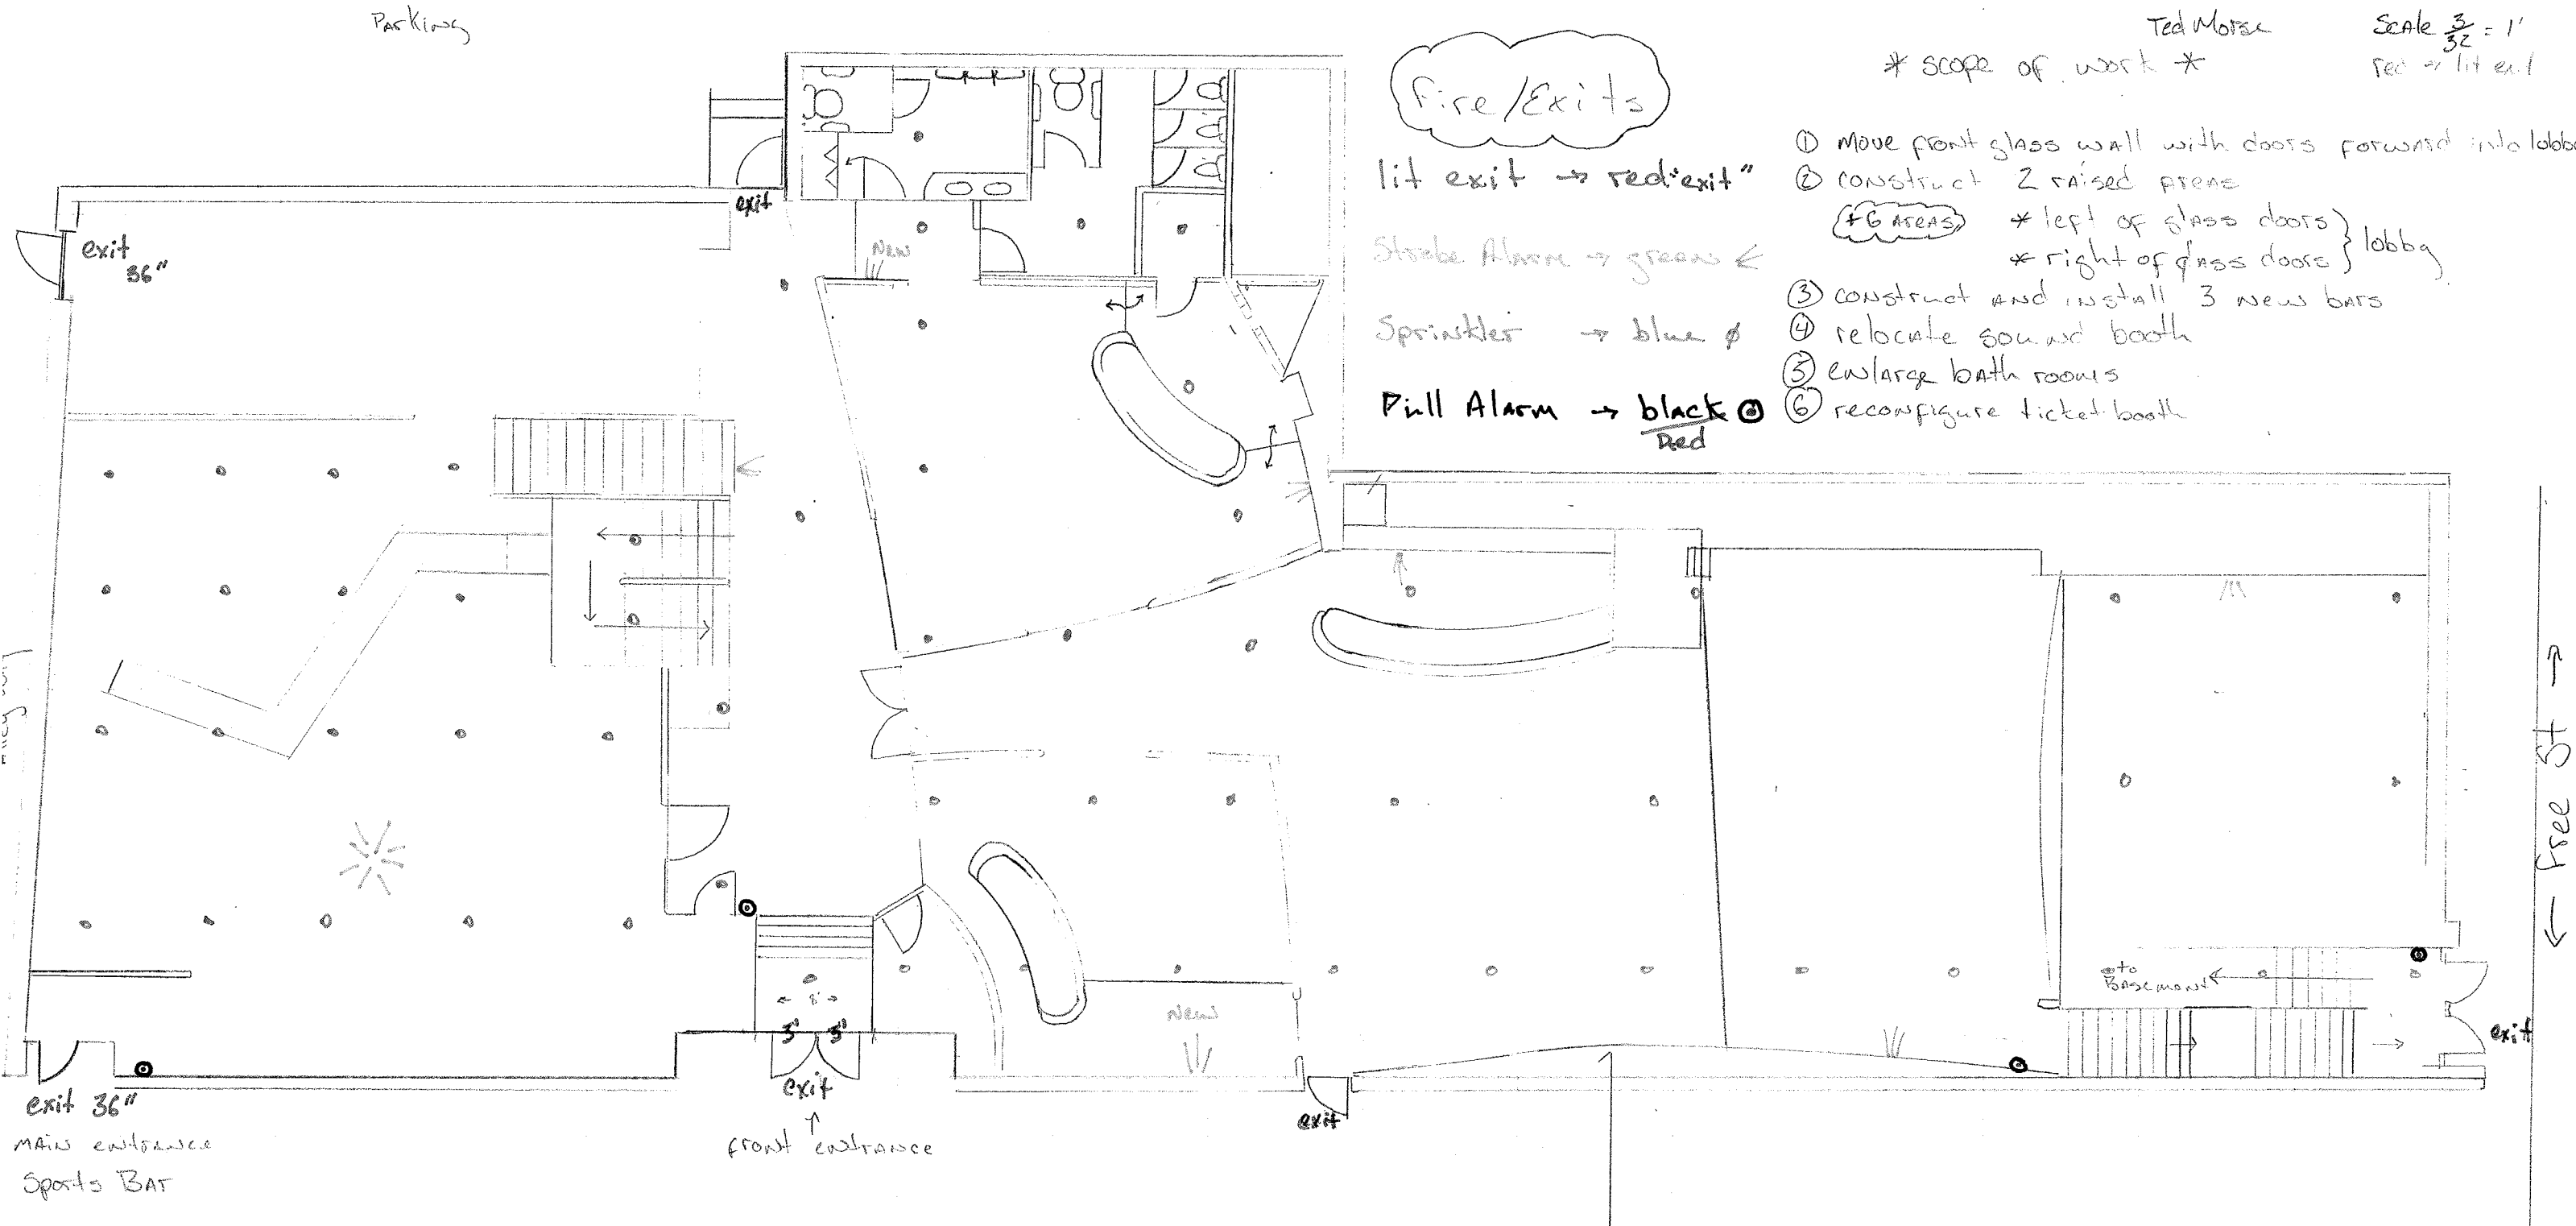 Parking
Ted Morse
Scale 3/32 = 1'
* scope of work *
red → lit exit
Fire/Exits
lit exit → red "exit"
Strobe Alarm → green <
Sprinkler → blue ø
Pull Alarm → black
Red
① Move front glass wall with doors forward into lobby
② construct 2 raised areas
+6 Areas
* left of glass doors
* right of glass doors
lobby
③ construct and install 3 new bars
④ relocate sound booth
⑤ enlarge bath rooms
⑥ reconfigure ticket booth
exit
exit
36"
New
← Free St →
to
Basement
exit
New
← 8' →
3' 3'
exit
↑
front entrance
exit
exit 36"
Main entrance
Sports Bar